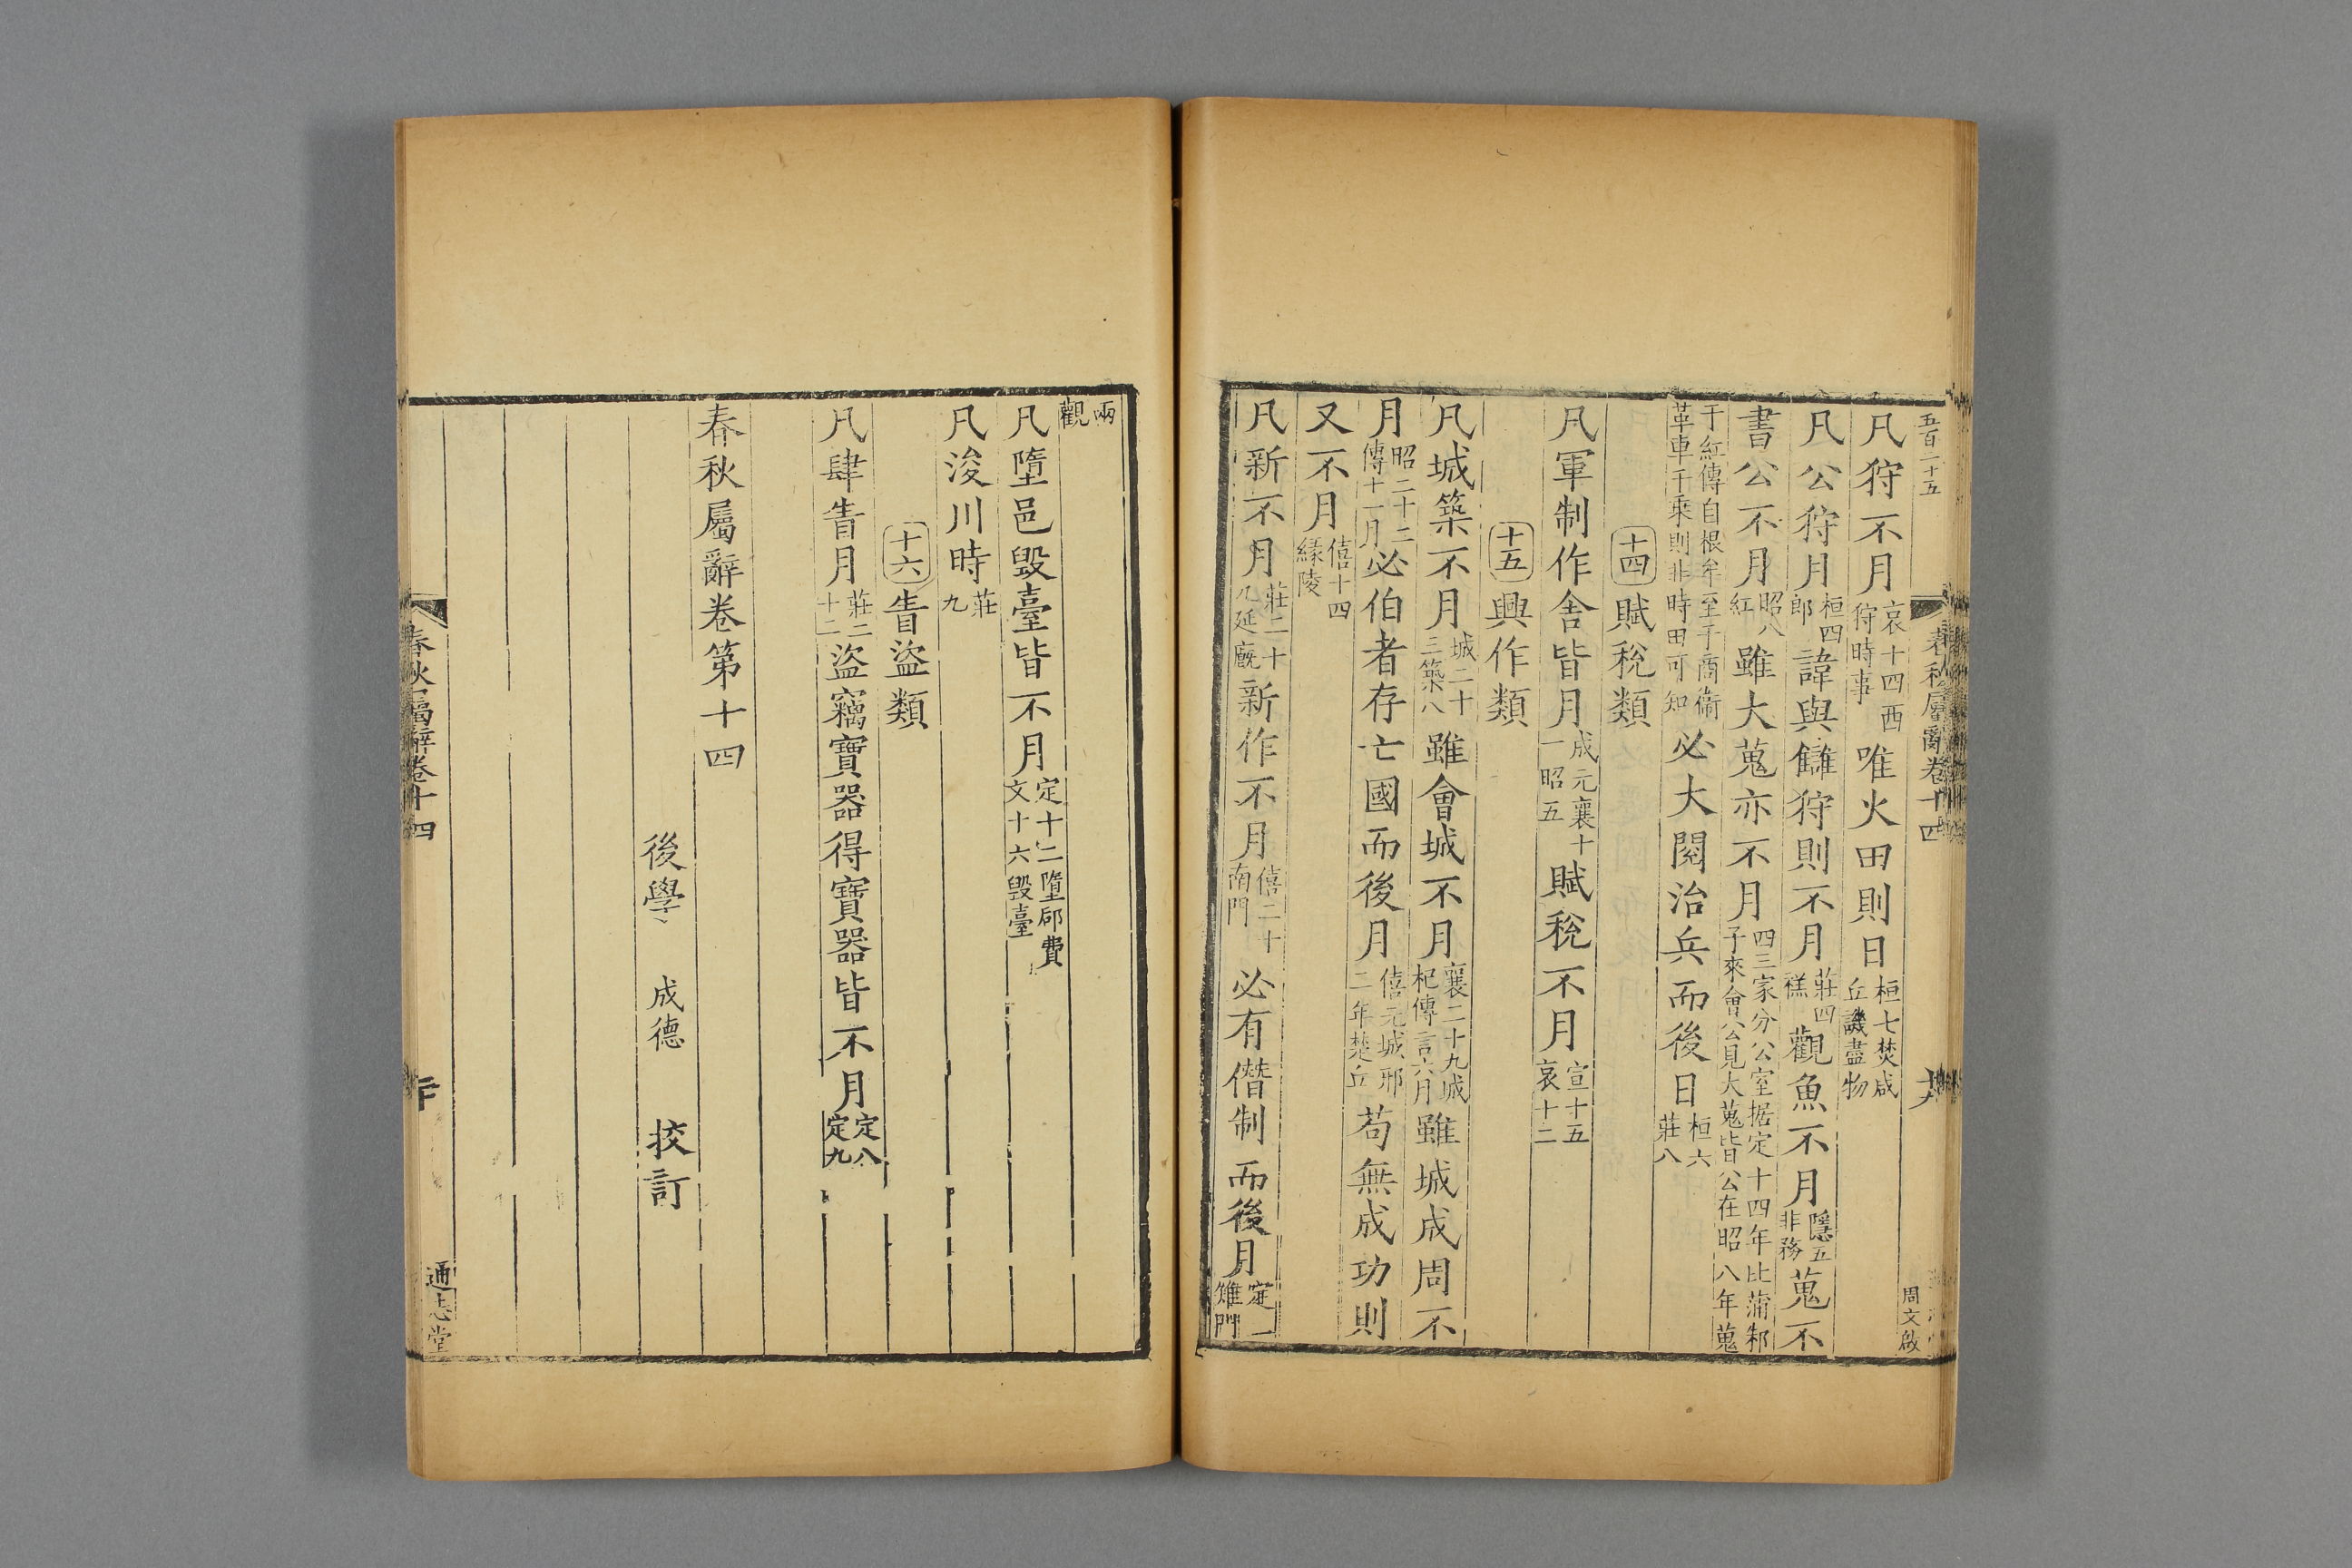 五百二十五
春秋屬辭卷十四
周文啟
凡狩不月哀十四西狩時事唯火田則日桓七焚咸丘譏盡物
凡公狩月桓四郎諱與讎狩則不月莊四禚觀魚不月隱五非務蒐不
書公不月昭八紅雖大蒐亦不月四三家分公室据定十四年比蒲邾子來會公見大蒐皆公在昭八年蒐
于紅傳自根牟至于商衞革車千乘則非時田可知必大閱治兵而後日桓六莊八
十四賦稅類
凡軍制作舍皆月成元襄十一昭五賦稅不月宣十五哀十二
十五興作類
凡城築不月城二十三築八雖會城不月襄二十九城杞傳言六月雖城成周不
月昭三十二傳十一月必伯者存亡國而後月僖元城邢二年楚丘苟無成功則
又不月僖十四緣陵
凡新不月莊二十九延廄新作不月僖二十南門必有僭制而後月定二雉門
兩觀
凡墮邑毀臺皆不月定十二墮郈費文十六毀臺
凡浚川時莊九
十六眚盜類
凡肆眚月莊二十二盜竊寶器得寶器皆不月定八定九
春秋屬辭卷第十四
後學 成德 挍訂
春秋屬辭卷十四
通志堂